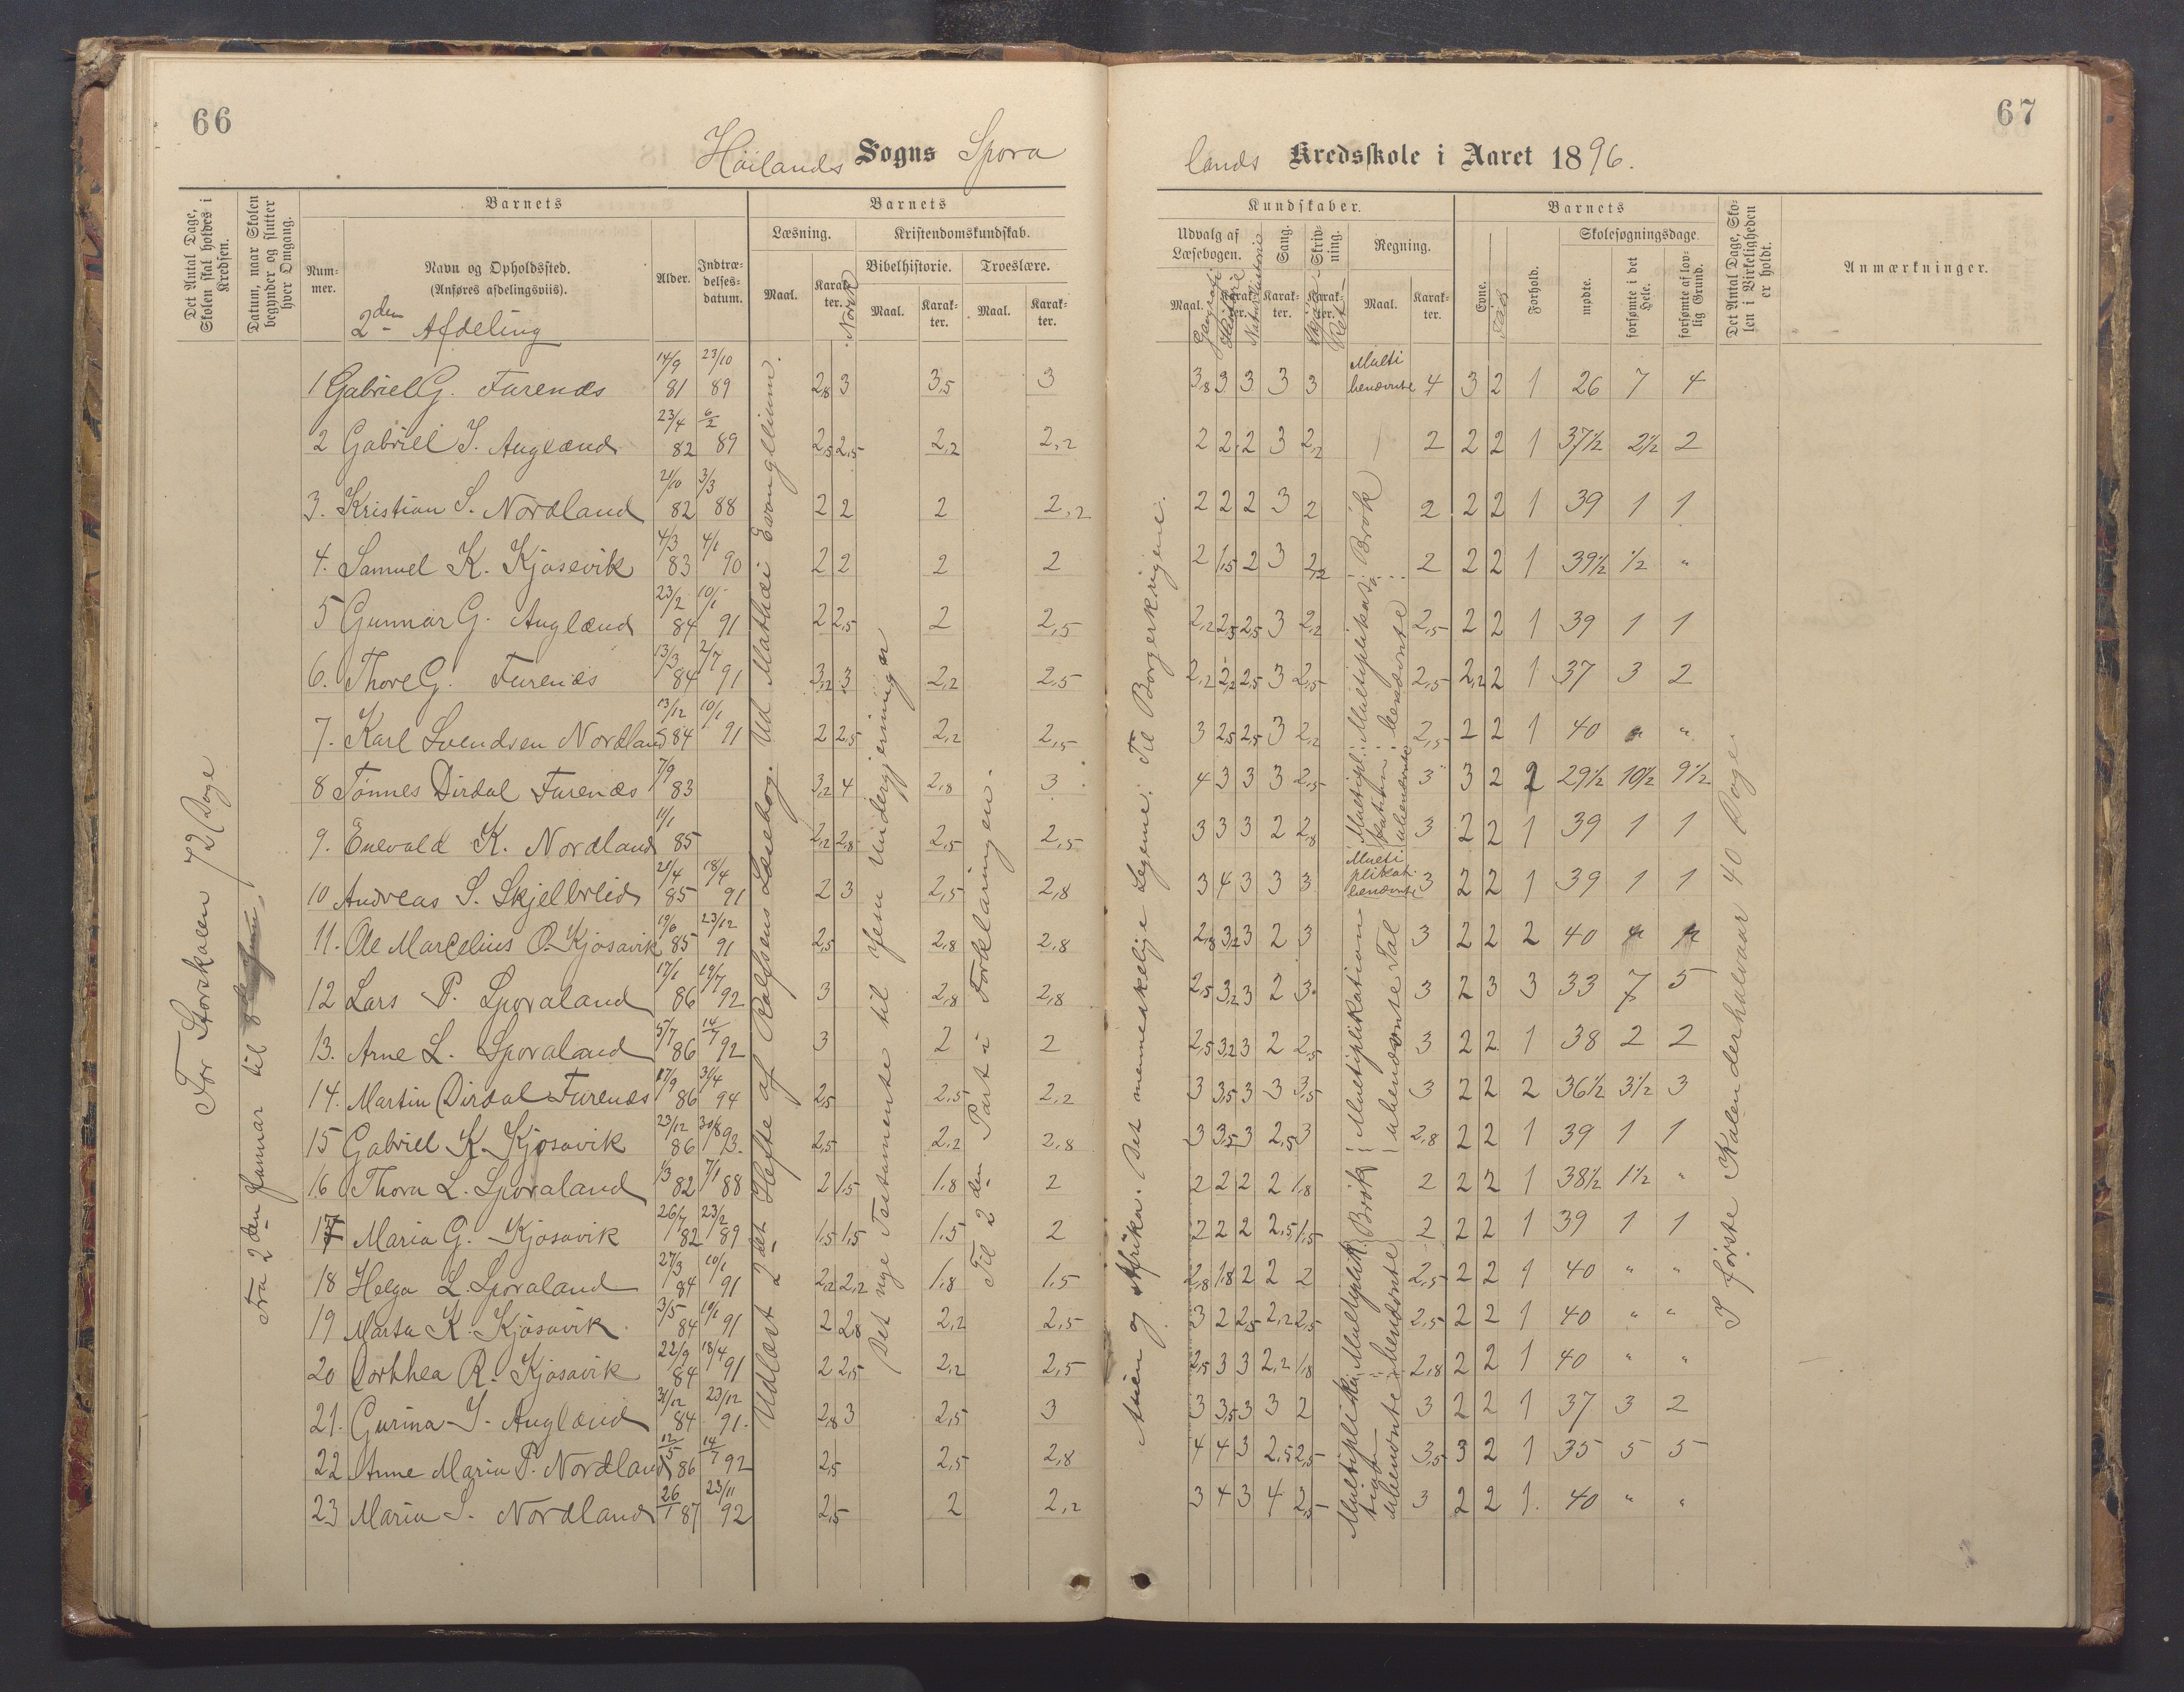 66
67
Höilands Sogns Spora
lands Kredsskole i Aaret 1896.
Det Antal Dage, Skolen skal holdes i Kredsen.
Datum, naar Skolen begynder og slutter hver Omgang.
Barnets
Barnets
Num-mer.
Navn og Opholdssted.
(Anføres afdelingsviis).
2den Afdeling
Alder.
Indtræ-delses-datum.
Læsning.
Maal.
Karak-ter.
Norsk
Kristendomskundskab.
Bibelhistorie.
Maal.
Karak-ter.
Troeslære.
Maal.
Karak-ter.
Kundskaber.
Udvalg af Læsebogen.
Maal.
Karak-ter.
Geografi
Historie
Naturhistorie
Sang.
Karak-ter.
Skriv-ning.
Karak-ter.
Regning.
Maal.
Karak-ter.
Barnets
Evne.
Flid
Forhold.
Skolesøgningsdage.
mødte.
forsømte i det Hele.
forsømte af lov-lig Grund.
Det Antal Dage, Sko-len i Virkeligheden er holdt.
Anmærkninger.
For Storskolen 72 Dage
Fra 2den Januar til 8de Juni
Udlæst 2det Hefte af Rolfsens Læsebog. Ud Mathæi Evangelium.
Det nye Testamente til Jesu Undergjerninger
Til 2den Part i Forklaringen.
Asien og Afrika. Det menneskelige Legeme. Til Borgerkrigene.
I første Kalenderhalvaar 40 Dage
1 Gabriel G. Furenæs 14/9 81 23/10 89 2,8 3 3,5 3 3,8 3 3 3 3 Multi benævnte 4 3 2 1 26 7 4
2 Gabriel S. Auglænd 23/4 82 6/2 89 2,5 2,5 2,2 2,2 2 2 2 3 2,2 2 2 2 1 37½ 2½ 2
3. Kristian S. Nordland 21/10 82 3/3 88 2 2 2 2,2 2 2 2 3 2 Brøk 2 2 2 1 39 1 1
4. Samuel K. Kjosevik 4/3 83 4/1 90 2 2 2 2 2 1,5 2 3 2,2 2 2 2 1 39½ ½ "
5 Gunnar G. Auglænd 23/2 84 10/1 91 2 2,5 2 2,5 2,2 2,5 2,5 3 2,2 2,5 2 2 1 39 1 1
6. Thore G. Furenæs 13/3 84 2/7 91 3,2 3 2,2 2,5 2,2 2,2 2,5 3 2,5 2,5 2,2 2 1 37 3 2
7. Karl Svendsen Nordland 13/12 84 10/1 91 2 2,5 2,2 2,5 3 2,5 2,5 3 2,2 2,5 2 2 1 40 " "
8 Tønnes Dirdal Furenæs 7/9 83 3,2 4 2,8 3 4 3 3 3 2,5 3 3 2 2 29½ 10½ 9½
9. Enevald K. Nordland 1/1 85 2,2 2,8 2,5 2,5 3 3 3 2 2,8 3 2 2 1 39 1 1
10 Andreas S. Skjelbreid 21/4 85 18/4 91 2 3 2,5 2,8 3 4 3 3 3 Multi plikat. benævnte 3 2 2 1 39 1 1
11. Ole Marcelius O. Kjosavik 19/6 85 23/12 91 2,5 2,8 2,8 2,8 3,2 3 2 3 3 2 2 2 40 " "
12 Lars P. Sporaland 17/1 86 19/7 92 3 2,8 2,8 2,5 3,2 3 2 3 3 2 3 3 33 7 5
13. Arne L. Sporaland 5/7 86 14/7 92 3 2 2 2,5 3,2 3 2 2,5 3 2 2 1 38 2 2
14. Martin Dirdal Furenæs 17/9 86 3/4 94 2,5 2,5 2,2 3 3,5 3 3 3,5 3 2 2 2 36½ 3½ 3
15 Gabriel K. Kjosavik 23/12 86 30/8 93. 2,5 2,2 2,8 3 3,5 3 2,5 3 2,8 2 2 1 39 1 1
16 Thora L. Sporaland 1/3 82 7/1 88 2 1,5 1,8 2 2 2 2 2 1,8 Brøk 2 2 2 1 38½ 1½ "
17 Maria G. Kjosavik 26/7 82 23/2 89 1,5 1,5 1,5 2 2 2 2 2,5 1,5 2 2 2 1 39 1 1
18 Helga L. Sporaland 27/3 84 10/1 91 2,2 2,2 1,8 1,5 2,8 1,8 2 2 2 2,5 2 2 1 40 " "
19 Marta K. Kjosavik 3/5 84 10/1 91 2 2,8 2,2 2,5 3 2 2,5 2,2 2,5 2,5 2 2 1 40 " "
20 Dorthea R. Kjosavik 22/9 84 18/4 91 2 2,5 2,2 2,5 2,5 3 3 2,2 1,8 2,8 2 2 1 40 " "
21. Gurina S. Auglænd 31/12 84 23/12 91. 2,8 3 2,5 3 3 3,5 3 3 2 3 2 2 1 37 3 2
22 Anne Maria P. Nordland 12/5 86 14/7 92 2,5 2,5 2,8 4 4 3 2,5 2,5 3,5 3 2 1 35 5 5
23 Maria S. Nordland 26/1 87 23/11 92 2,5 2 2,2 3 4 3 4 2,5 3 2 2 1. 40 " "
Multiplikation ubenævnte Tal